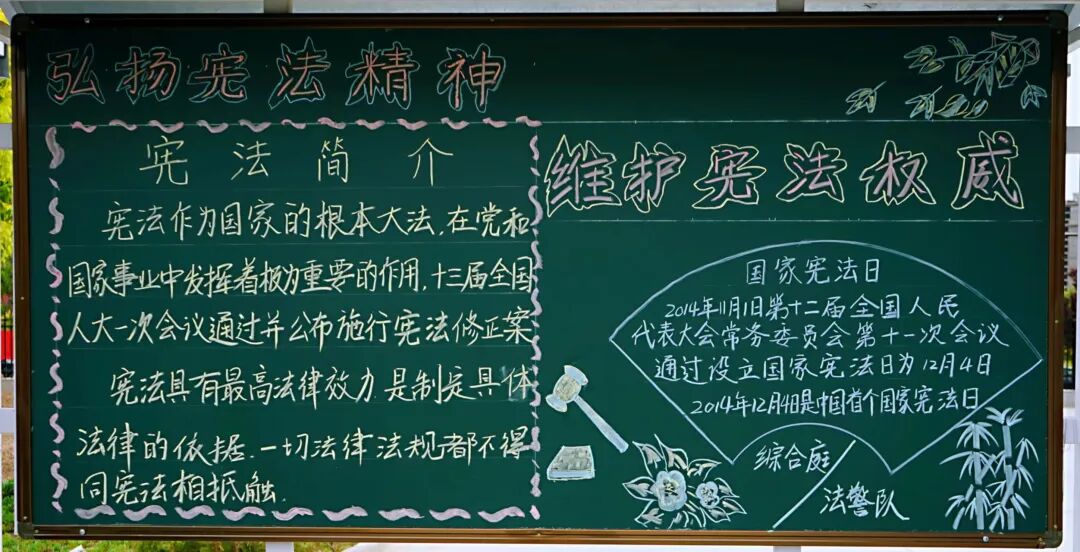 弘扬宪法精神
宪法简介
宪法作为国家的根本大法,在党和
国家事业中发挥着极为重要的作用,十三届全国
人大一次会议通过并公布施行宪法修正案
宪法具有最高法律效力是制定具体
法律的依据.一切法律法规都不得
同宪法相抵触.
维护宪法权威
国家宪法日
2014年11月1日第十二届全国人民
代表大会常务委员会第十一次会议
通过设立国家宪法日为12月4日
2014年12月4日是中国首个国家宪法日
综合庭/
法警队